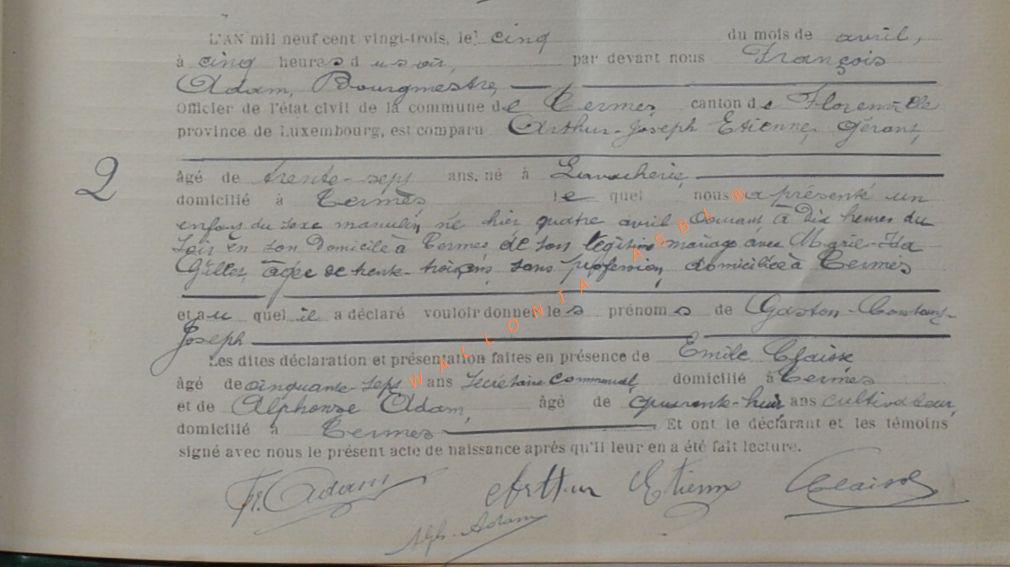 L'AN mil neuf cent vingt-trois, le cinq du mois de avril,
à cinq heures du soir, par devant nous François
Adam, Bourgmestre,
Officier de l'état civil de la commune de Termes, canton de Florenville
province de Luxembourg, est comparu Arthur-Joseph Etienne, gérant,
2
âgé de trente-sept ans, né à Lavacherie,
domicilié à Termes le quel nous a présenté un
enfant du sexe masculin, né hier quatre avril courant à dix heures du
soir en son domicile à Termes de son légitime mariage avec Marie-Ida
Gillet, âgée de trente-trois ans, sans profession, domiciliée à Termes
et au quel il a déclaré vouloir donner les prénoms de Gaston-Constant-
Joseph
Les dites déclaration et présentation faites en présence de Emile Claisse
âgé de cinquante-sept ans secrétaire communal, domicilié à Termes
et de Alphonse Adam, âgé de quarante-huit ans cultivateur,
domicilié à Termes Et ont le déclarant et les témoins
signé avec nous le présent acte de naissance après qu'il leur en a été fait lecture.
Fr. Adam Arthur Etienne Claisse
Alph. Adam
WALLONIA ASBL ®